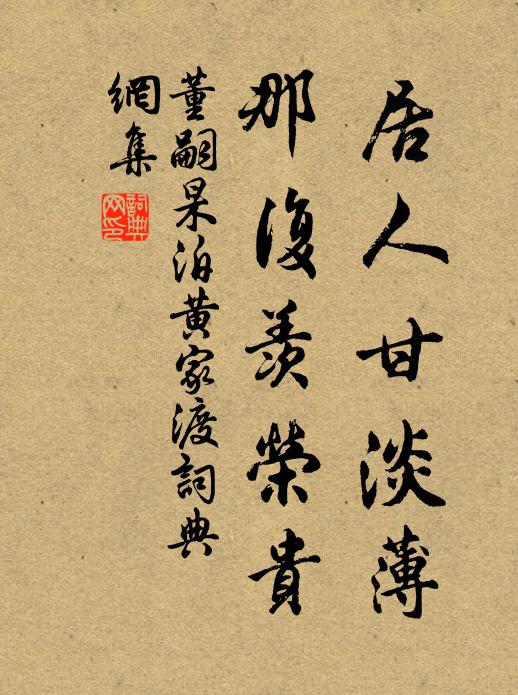 居人甘淡薄
那復羨榮貴
董嗣杲泊黄家渡詞典
網集
詞典
网印